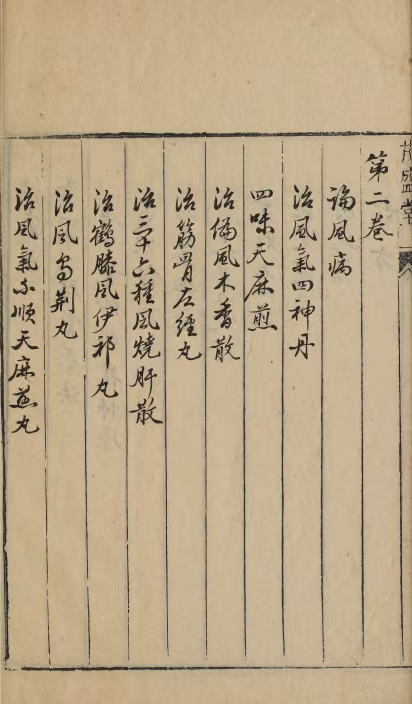 茂盛堂
第二卷
論風病
治風氣四神丹
四味天麻煎
治偏風木香散
治筋骨左經丸
治三十六種風燒肝散
治鶴膝風伊祁丸
治風烏荆丸
治風氣不順天麻煎丸